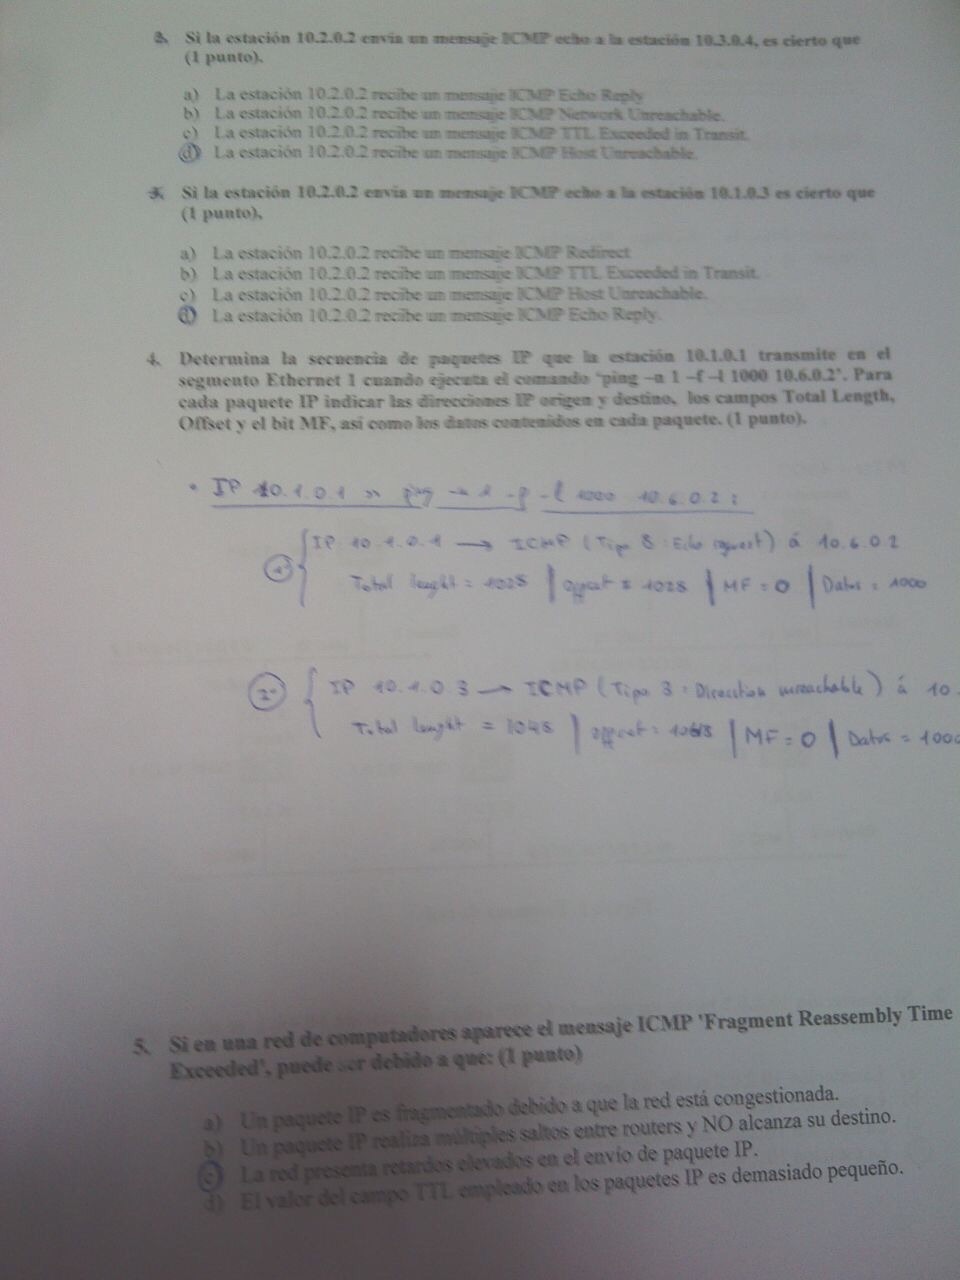 2. Si la estación 10.2.0.2 envía un mensaje ICMP echo a la estación 10.3.0.4, es cierto que
(1 punto).
a) La estación 10.2.0.2 recibe un mensaje ICMP Echo Reply
b) La estación 10.2.0.2 recibe un mensaje ICMP Network Unreachable.
c) La estación 10.2.0.2 recibe un mensaje ICMP TTL Exceeded in Transit.
d) La estación 10.2.0.2 recibe un mensaje ICMP Host Unreachable.
3. Si la estación 10.2.0.2 envía un mensaje ICMP echo a la estación 10.1.0.3 es cierto que
(1 punto),
a) La estación 10.2.0.2 recibe un mensaje ICMP Redirect
b) La estación 10.2.0.2 recibe un mensaje ICMP TTL Exceeded in Transit.
c) La estación 10.2.0.2 recibe un mensaje ICMP Host Unreachable.
d) La estación 10.2.0.2 recibe un mensaje ICMP Echo Reply.
4. Determina la secuencia de paquetes IP que la estación 10.1.0.1 transmite en el
segmento Ethernet 1 cuando ejecuta el comando 'ping –n 1 –f –l 1000 10.6.0.2'. Para
cada paquete IP indicar las direcciones IP origen y destino, los campos Total Length,
Offset y el bit MF, así como los datos contenidos en cada paquete. (1 punto).
• IP 10.1.0.1 >> ping -n 1 -f -l 1000 10.6.0.2 :
1º IP 10.1.0.1 → ICMP (Tipo 8 : Echo request) á 10.6.0.2
Total lenght = 1028 | Offcet = 1028 | MF = 0 | Datos = 1000
2º IP 10.1.0.3 → ICMP (Tipo 3 : Direcction unreachable) á 10.
Total lenght = 1048 | offcet = | MF = 0 | Datos = 1000
5. Si en una red de computadores aparece el mensaje ICMP 'Fragment Reassembly Time
Exceeded', puede ser debido a que: (1 punto)
a) Un paquete IP es fragmentado debido a que la red está congestionada.
b) Un paquete IP realiza múltiples saltos entre routers y NO alcanza su destino.
c) La red presenta retardos elevados en el envío de paquete IP.
d) El valor del campo TTL empleado en los paquetes IP es demasiado pequeño.